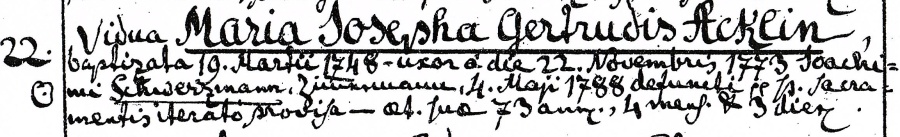 22. Vidua Maria Josepha Gertrudis Acklin,
baptizata 19. Martii 1748 - uxor a die 22. Novembris 1773 Joachi=
mi Schwerzmann, Zimmermann, 4. Maji 1788 defuncti ss. Sacra=
mentis iterato provisa - aet. suae 73 ann., 4 mens. & 3 dier.